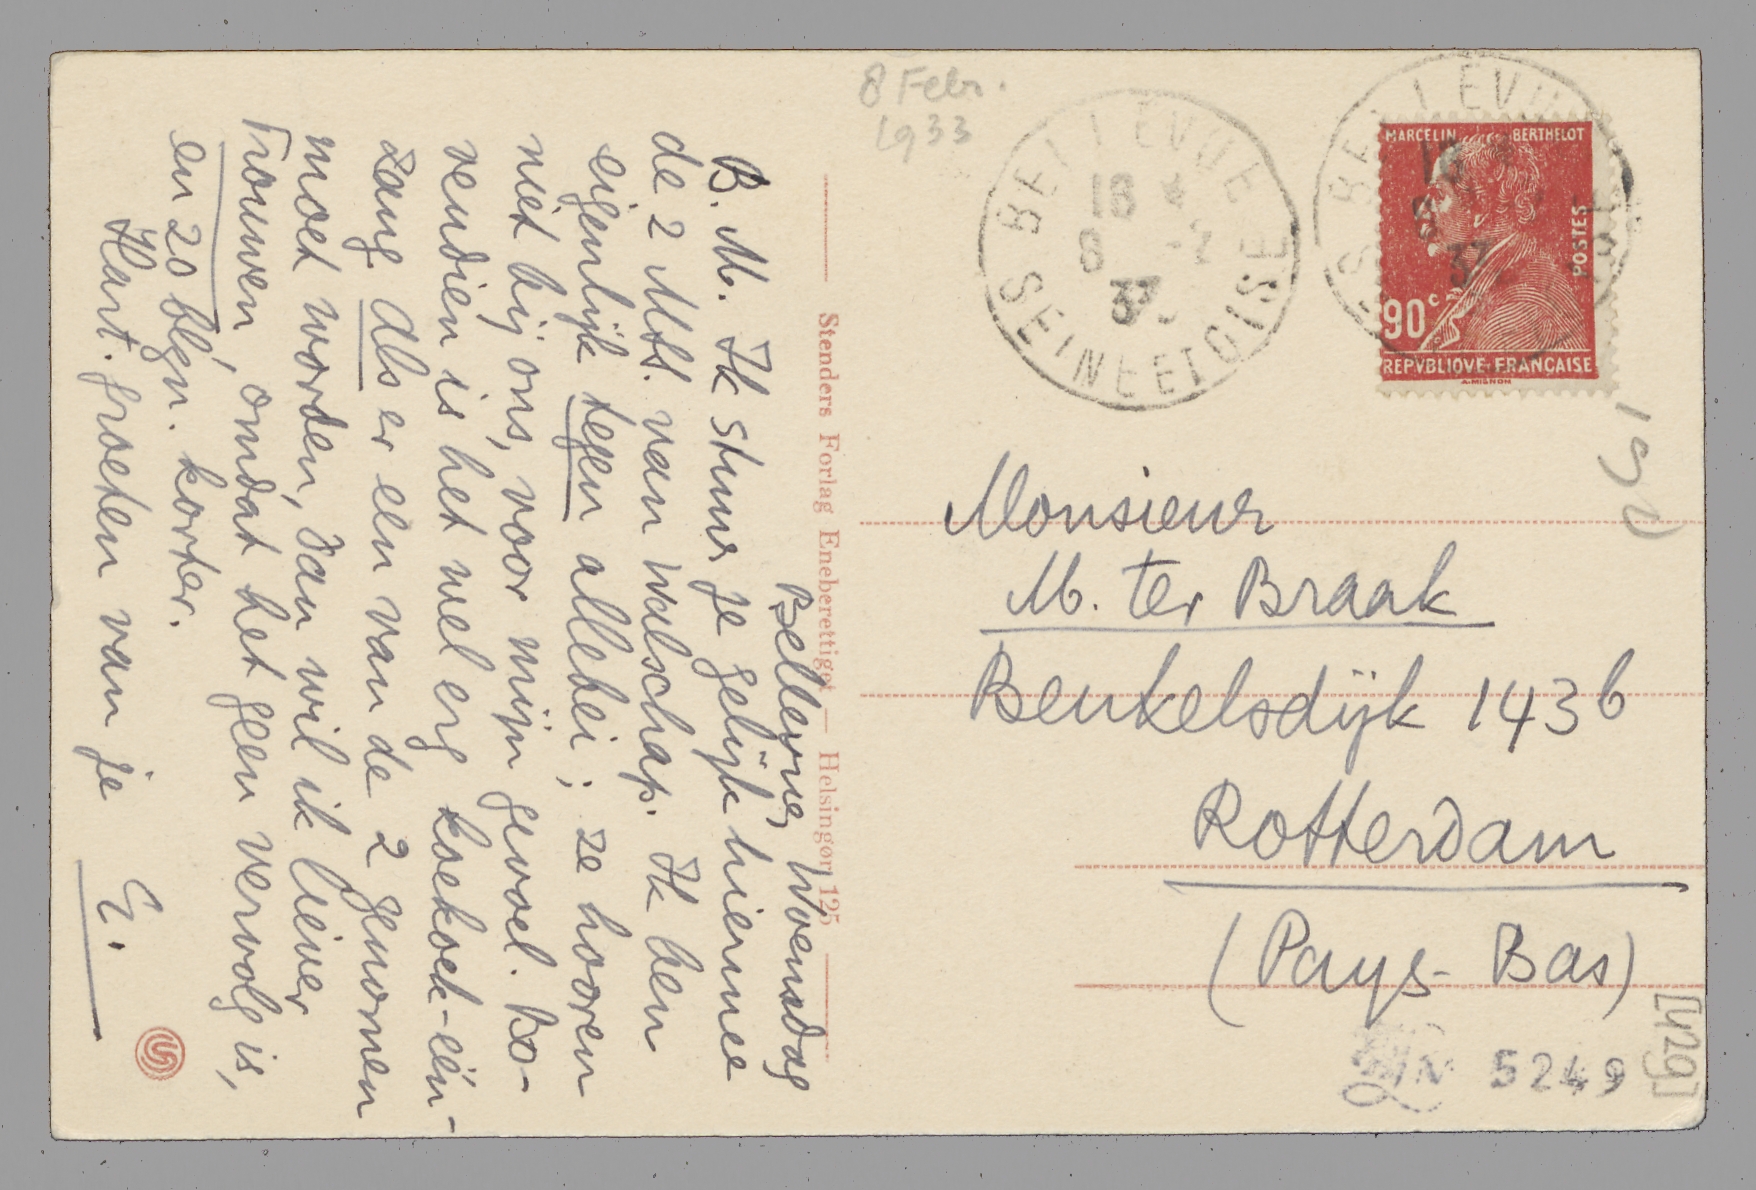 8 Febr.
1933
Bellevue, Woensdag
B. M. Ik stuur je gelijk hiermee
de 2 Mss. van Walschap. Ik ben
eigenlijk tegen allebei; ze hooren
niet bij ons, voor mijn gevoel. Bo-
vendien is het wel erg koekoek-één-
zang. Als er een van de 2 genomen
moet worden, dan wil ik liever
Trouwen, omdat het geen vervolg is,
en 20 blzn. korter.
Hart. groeten van je
E.
Stenders Forlag Eneberettiget — Helsingør 125
BELLEVUE
18 *
8 -2
33
SEINE ET OISE
MARCELIN BERTHELOT
POSTES
90c
REPVBLIQVE FRANÇAISE
A. MIGNON
Monsieur
M. ter Braak
Beukelsdijk 143b
Rotterdam
(Pays-Bas)
190
[429]
5249